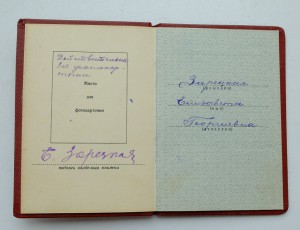 Действительно
без фотокар
точки
Место
для
фотокарточки
Е. Зарецкая
подпись владельца книжки
Зарецкая
(фамилия)
Елизавета
(имя)
Георгиевна
(отчество)